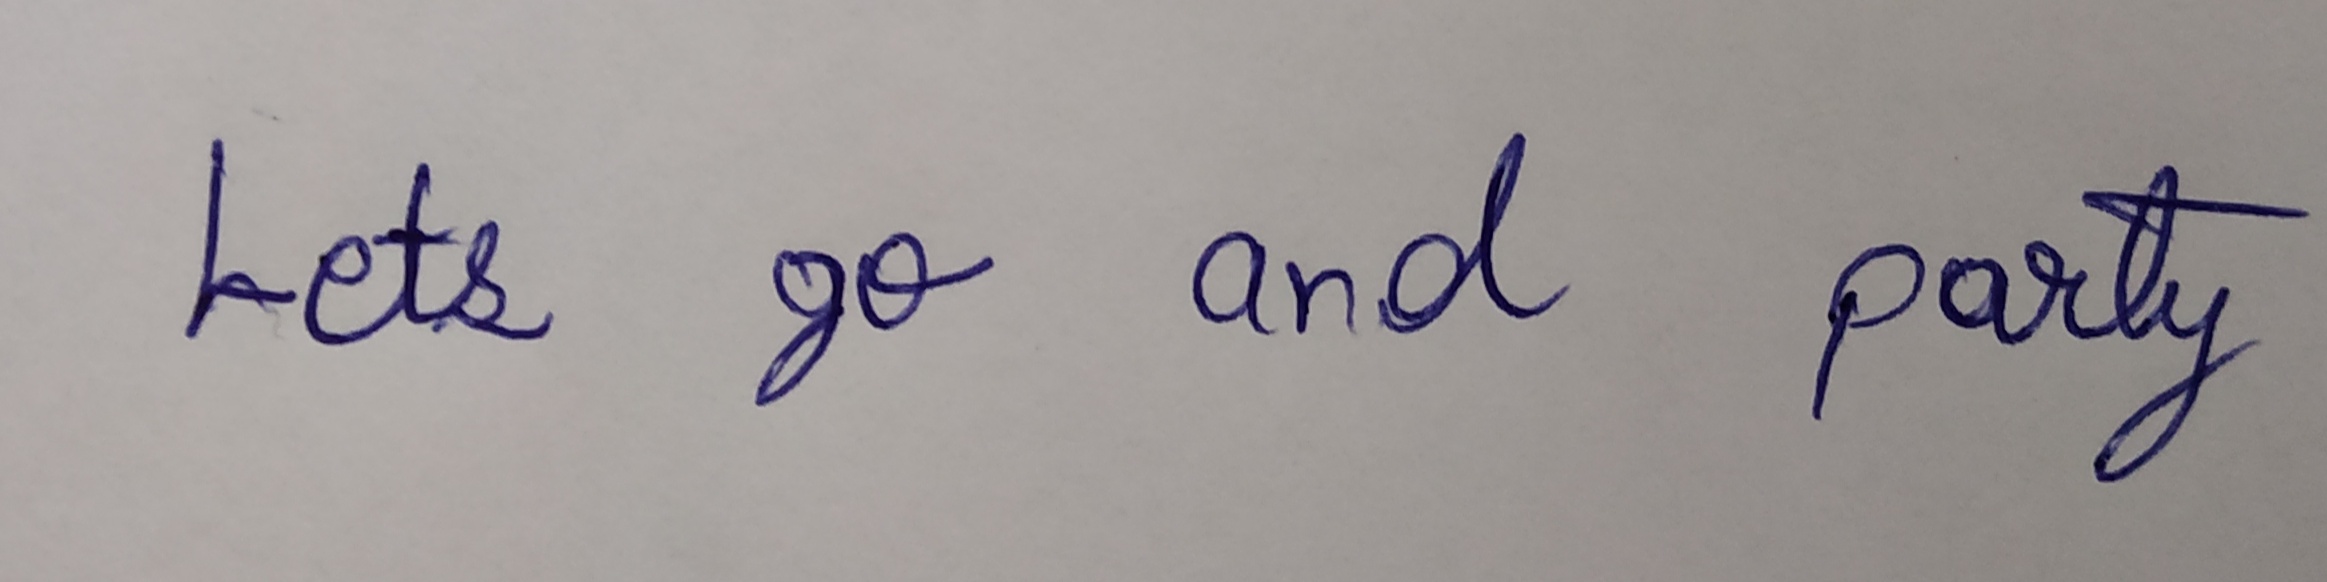 Lets go and party